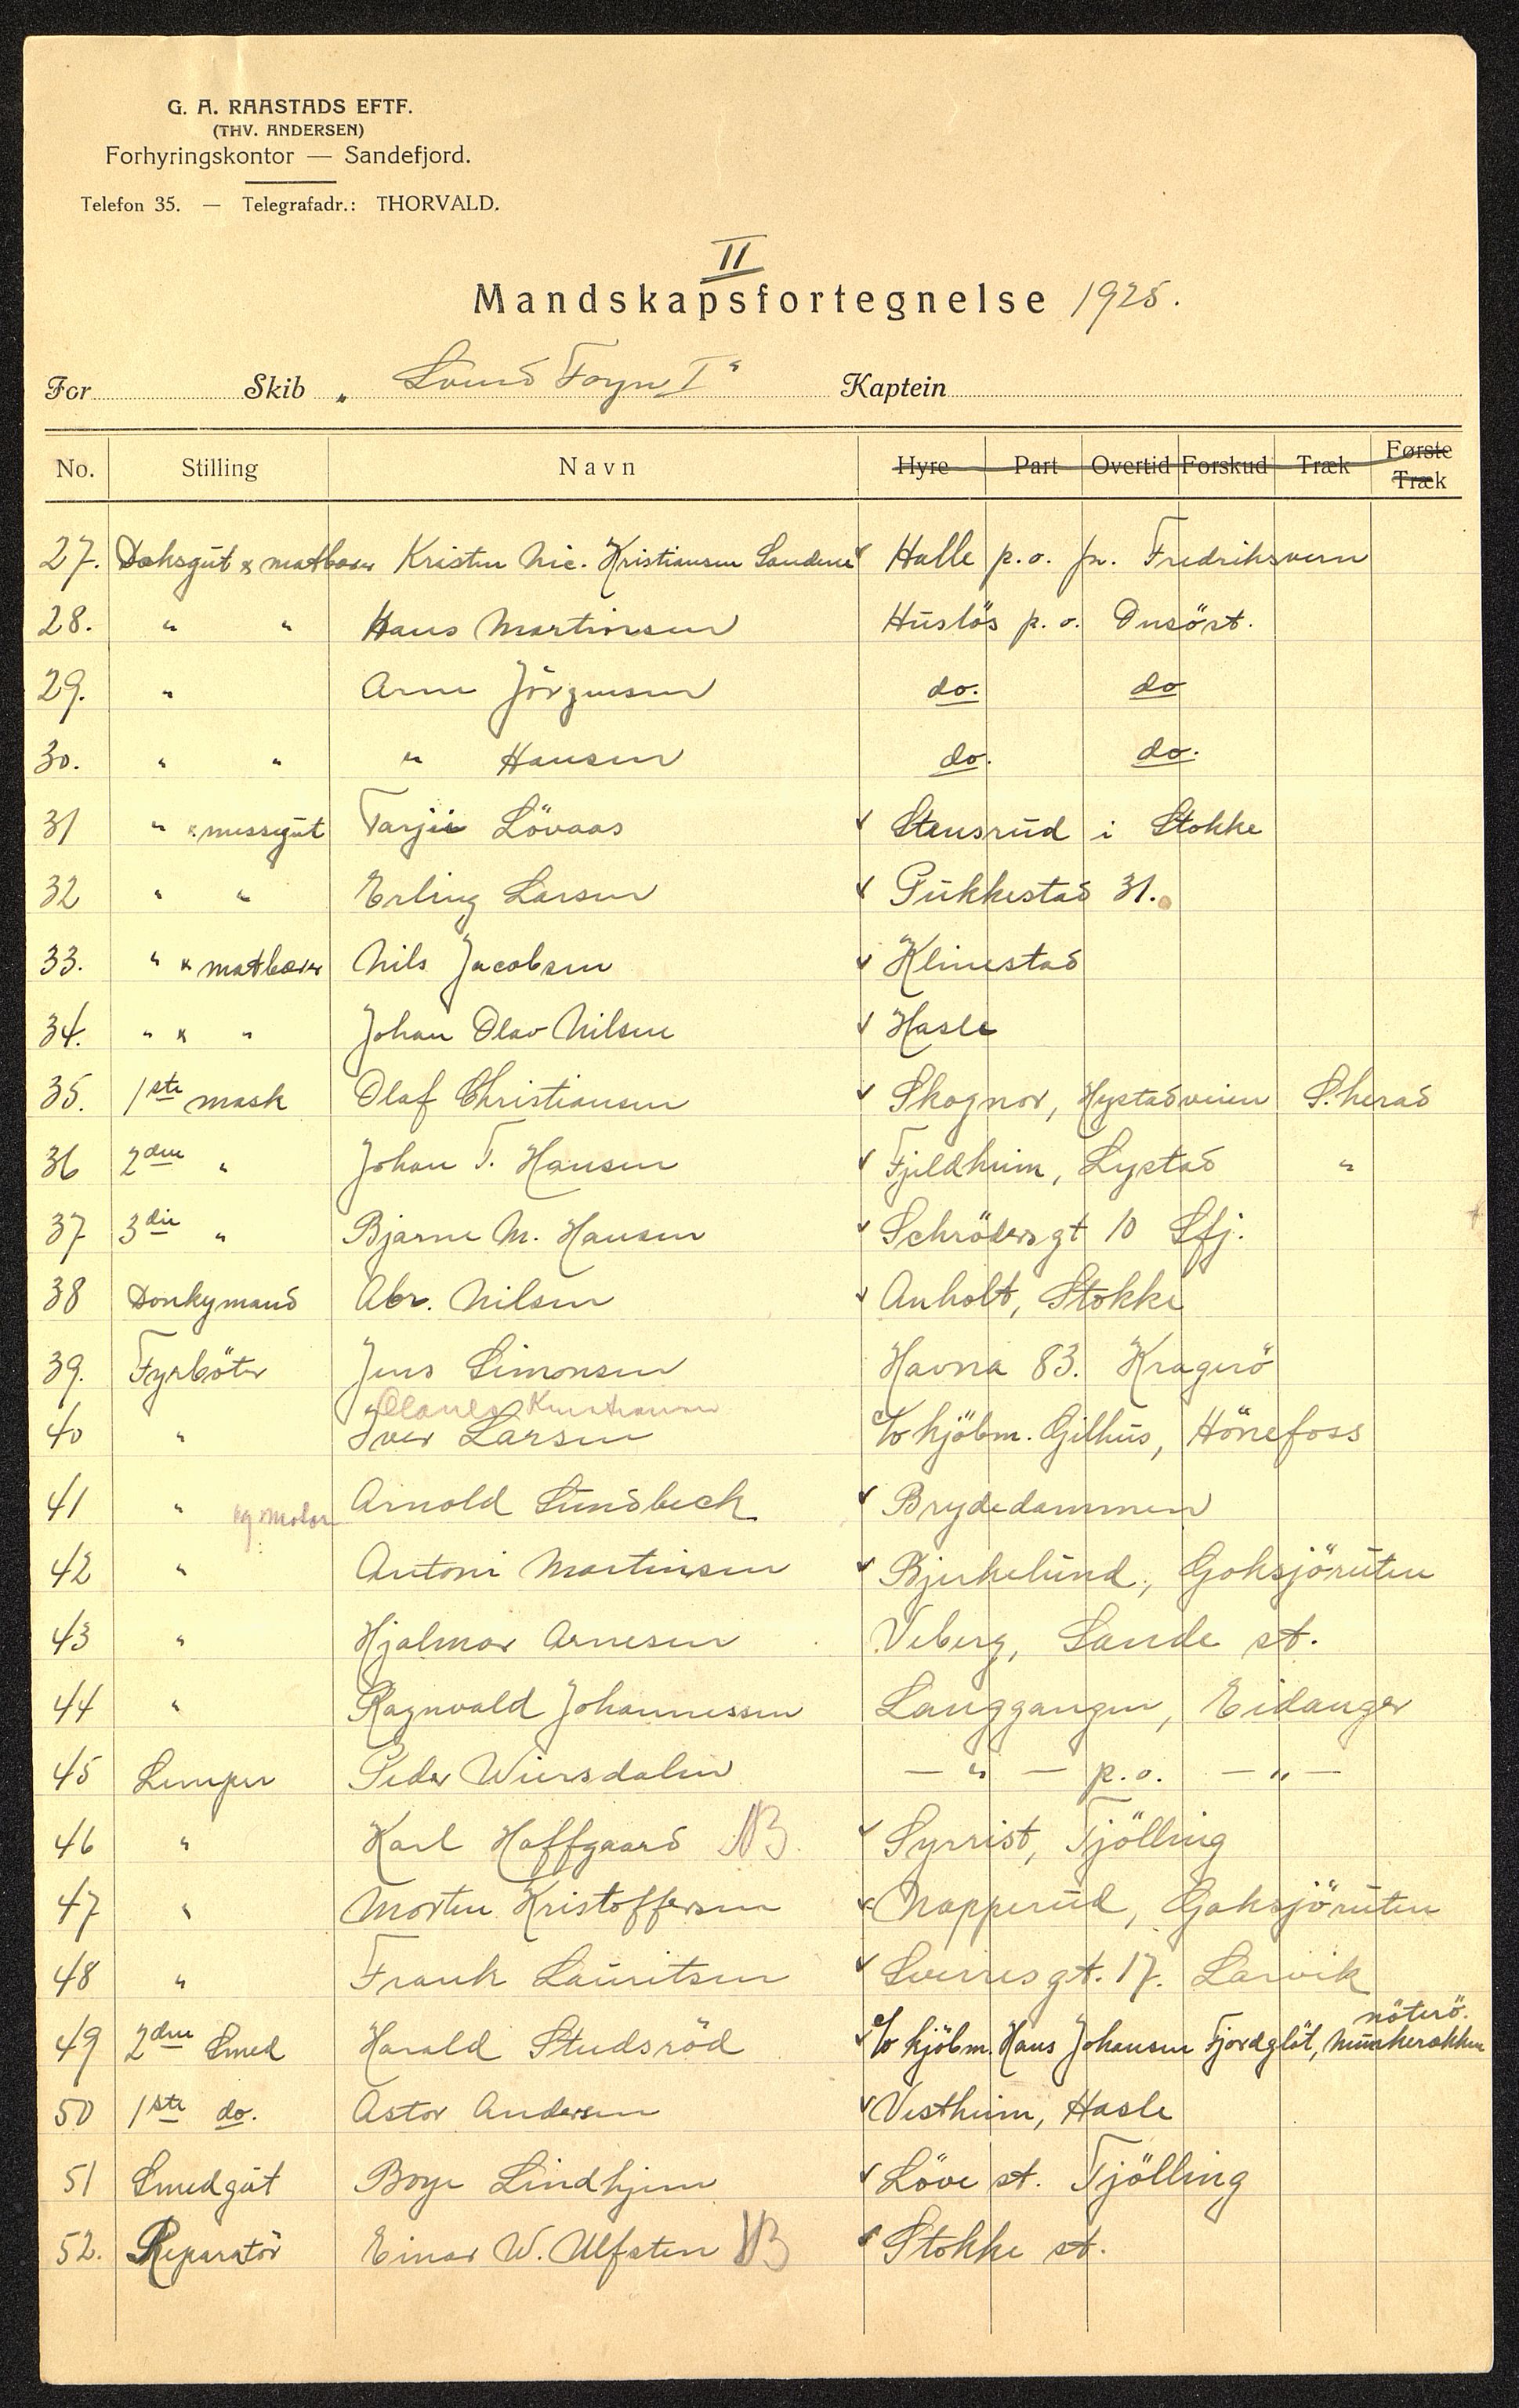 G. A. RAASTADS EFTF.
(THV. ANDERSEN)
Forhyringskontor — Sandefjord.
Telefon 35. — Telegrafadr.: THORVALD.
II
Mandskapsfortegnelse 1925.
For Skib „ Svend Foyn I" Kaptein
No. Stilling Navn Hyre Part Overtid Forskud Træk Første Træk
27. Dæksgut & matbærer Kristen Nic. Kristiansen Sandene Halle p.o. pr. Fredriksvern
28. " " Hans Martinsen Husløs p.o. Dusöst.
29. " Arne Jörgensen do. do
30. " " " Hansen do. do.
31 " & messegut Tarjei Lövaas Stensrud i Stokke
32 " " Erling Larsen Pukkestad 31.
33. " & matbærer Nils Jacobsen Klinestad
34. " & " Johan Olav Nilsen Hasle
35. 1ste mask Olaf Christiansen Skognor, Hystadveien S.herad
36 2den " Johan T. Hansen Fjeldheim, Lystad "
37 3die " Bjarne M. Hansen Schrödersgt 10 Sfj.
38 Donkymand Abr. Nilsen Anholt, Stokke
39. Fyrböter Jens Simonsen Havna 83. Kragerö
Kristiansen
40 " Iver Larsen c/o kjöbm. Gilhus, Hönefoss
41 " Arnold Sundbeck Brydedammen
og motor
42 " Antoni Martinsen Bjerkelund, Goksjöruten
43 " Hjalmar Arnesen Veberg, Sande st.
44 " Ragnvald Johannessen Langgangen, Eidanger
45 Lemper Peder Wiersdalen — " — p.o. — " —
46 " Karl Hoffgaard NB Syrrist, Tjölling
47 " Morten Kristoffersen Napperud, Goksjöruten
48 " Frank Lauritsen Sverresgt. 17. Larvik
nöterö.
49 2den Smed Harald Studsröd c/o kjöbm. Hans Johansen Fjordglöt, Munkerekken
50 1ste do. Astor Andersen Vestheim, Hasle
51 Smedgut Boye Lindhjem Löve st. Tjölling
52. Reparatör Einar W. Ulfsten NB Stokke st.